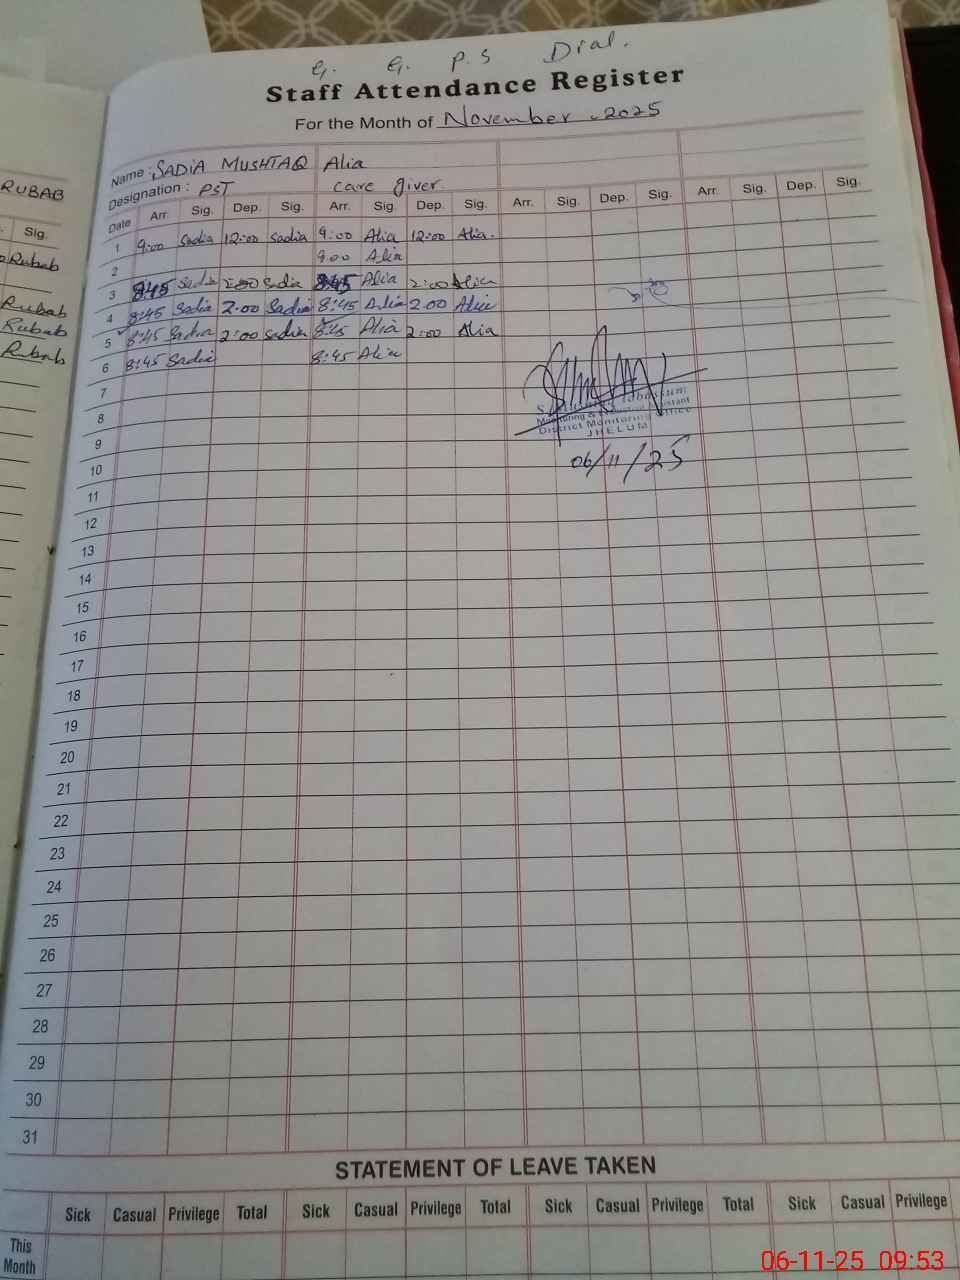 G. G. P.S Dial.
Staff Attendance Register
For the Month of November - 2025
RUBAB
Sig.
Rubab
Rubab
Rubab
Rubab
Name : SADIA MUSHTAQ Alia
Designation : PST care giver
Date Arr. Sig. Dep. Sig. Arr. Sig. Dep. Sig. Arr. Sig. Dep. Sig. Arr. Sig. Dep. Sig.
1 9:00 Sadia 12:00 Sadia 9:00 Alia 12:00 Alia.
2 9:00 Alia
3 8:45 Sadia 2:00 Sadia 8:45 Alia 2:00 Alia
4 8:45 Sadia 2:00 Sadia 8:45 Alia 2:00 Alia
5 8:45 Sadia 2:00 Sadia 8:45 Alia 2:00 Alia
6 8:45 Sadia 8:45 Alia
7
8
District Monitoring Office
JHELUM
9
06/11/25
10
11
12
13
14
15
16
17
18
19
20
21
22
23
24
25
26
27
28
29
30
31
STATEMENT OF LEAVE TAKEN
Sick Casual Privilege Total Sick Casual Privilege Total Sick Casual Privilege Total Sick Casual Privilege
This
Month
06-11-25 09:53